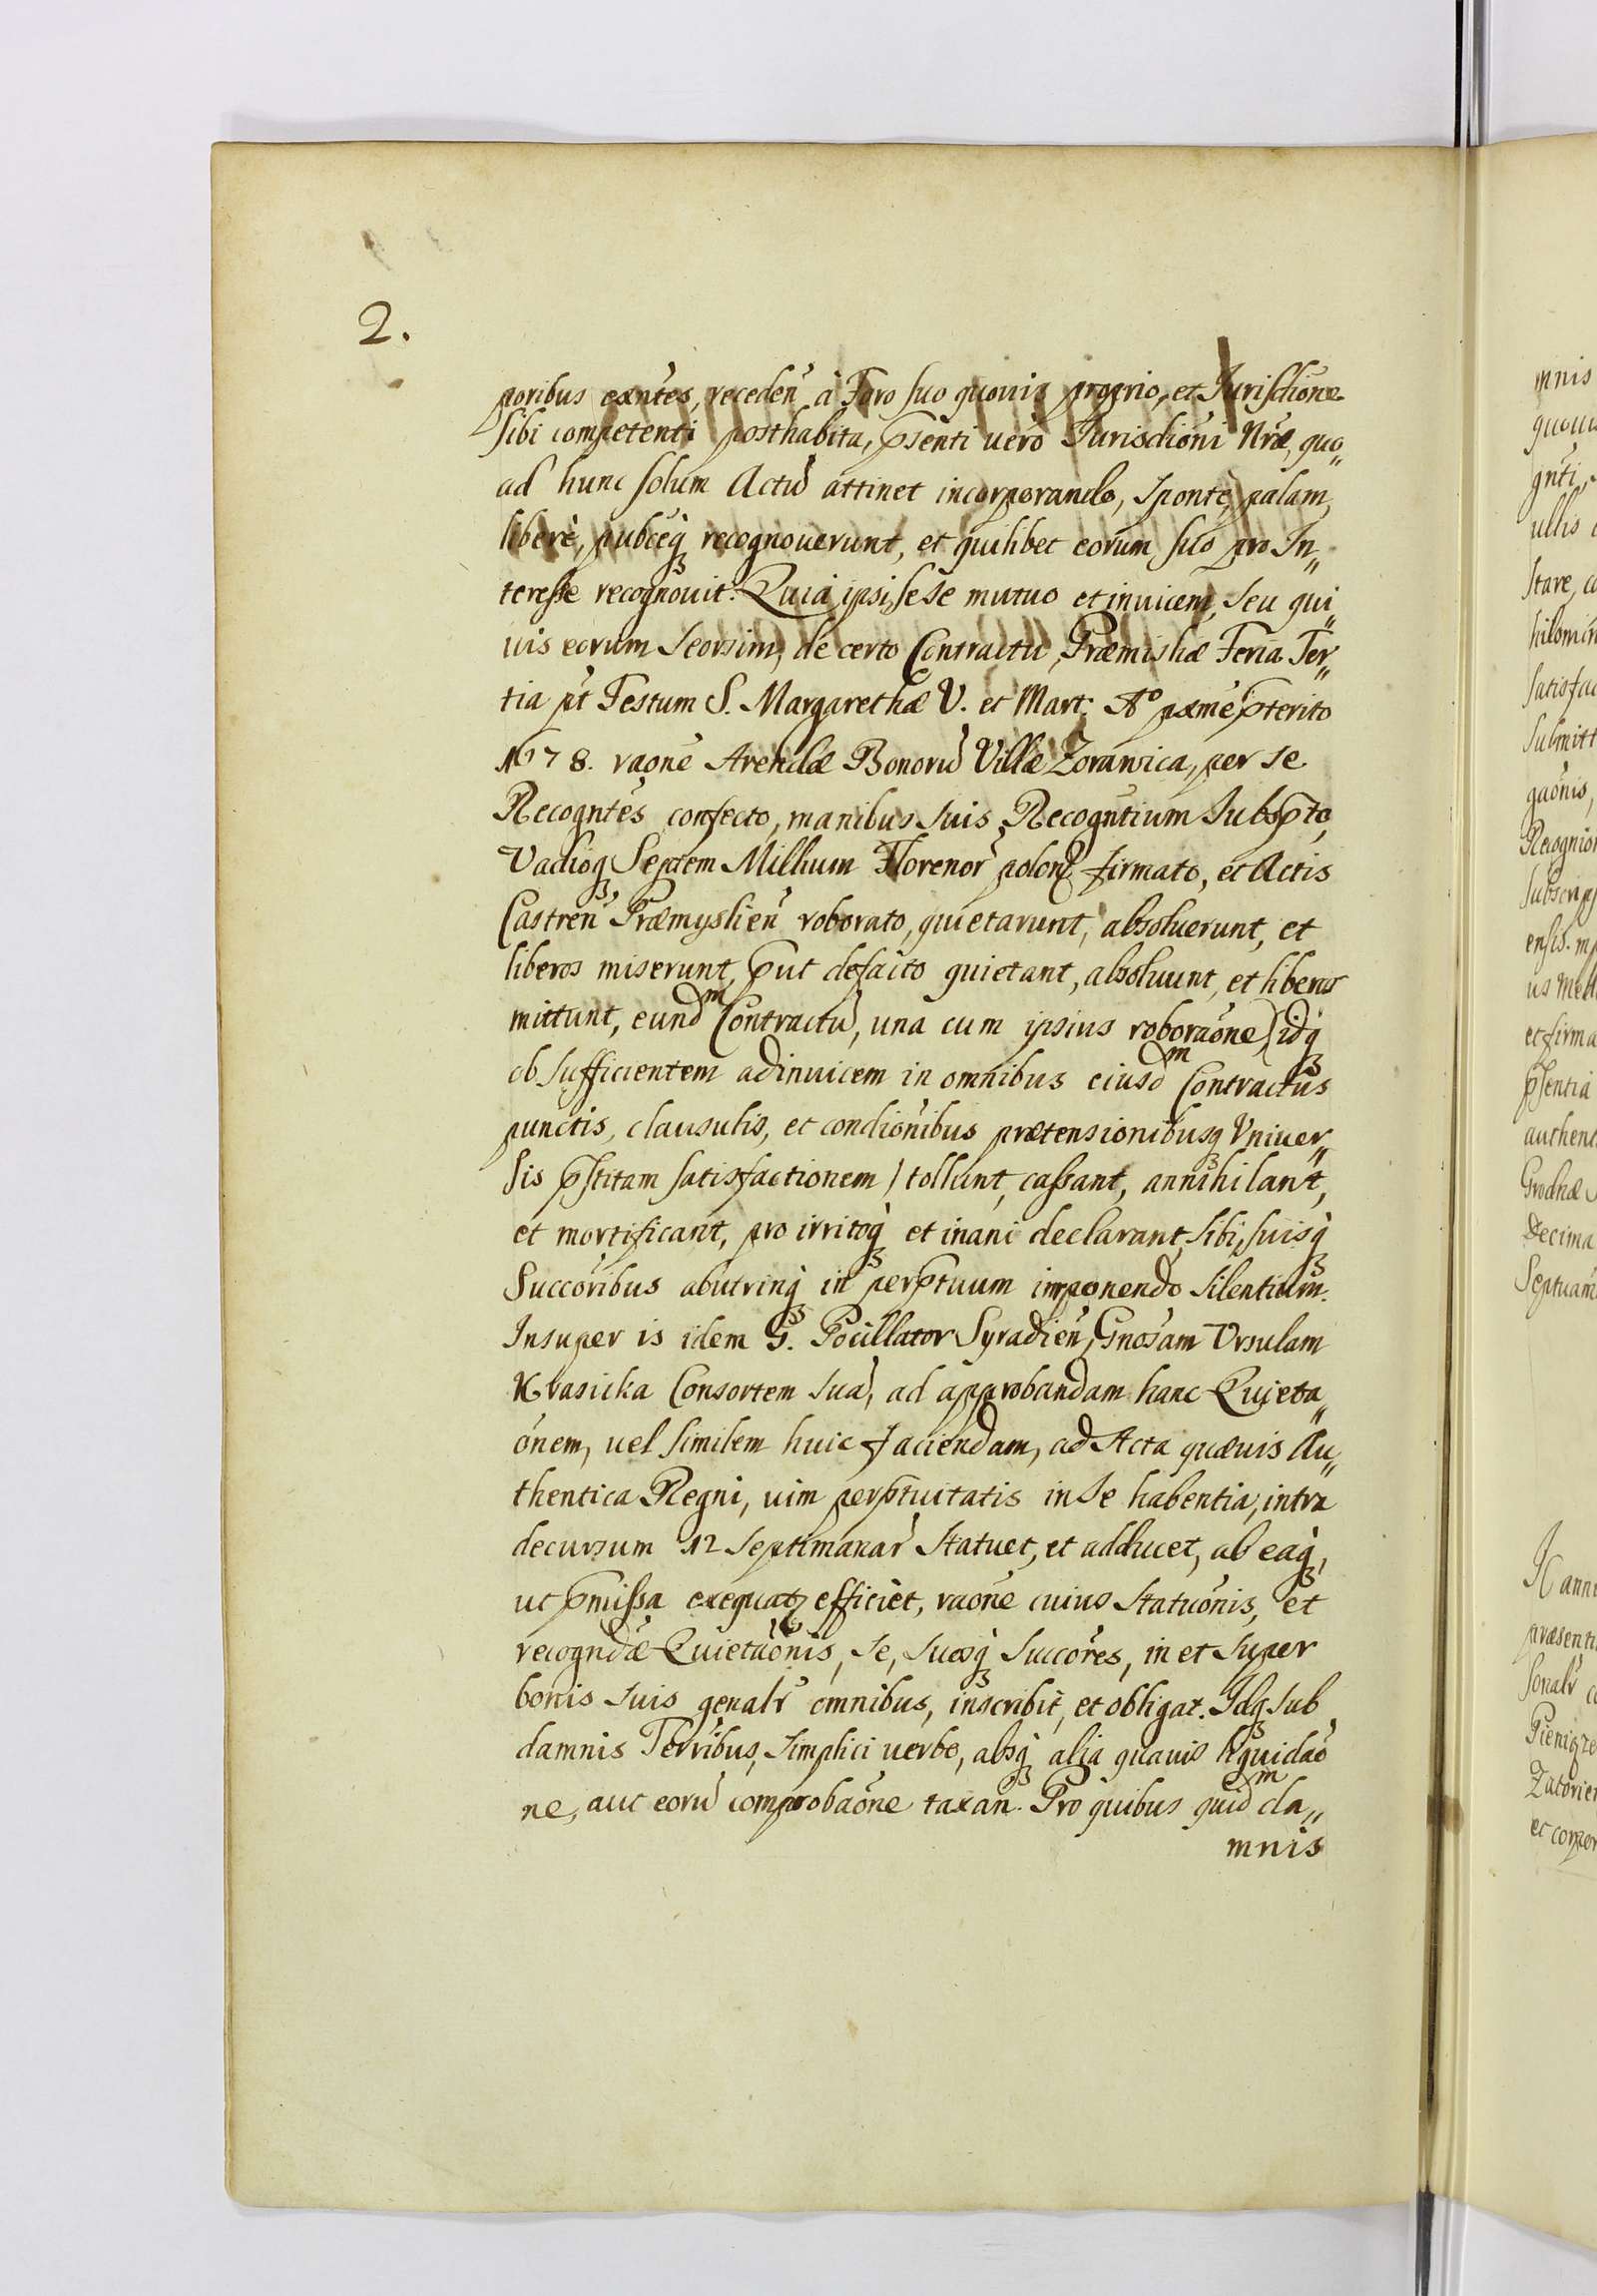 2.
poribus exñtes, recedeñ à Foro suo quouis proprio, et Jurisdictione
sibi competenti posthabita, p̃senti uero Jurisdicõni Nr̃æ, quo„
ad hunc solum Actũ attinet incorporando, sponte, palam,
liberè, publiceq̃ recognouerunt, et quilibet eorum suo pro In„
teresse recognouit. Quia ipsi sese mutuo et inuicem, seu qui„
uis eorum seorsim, de certo Contractu, Præmisliæ Feria Ter„
tia p̃t Festum S. Margarethæ V. et Mart: Aº pxmẽ p̃terito
1678. raõne Arendæ Bonorũ Villæ Zorawica, per se
Recogntẽs confecto, manibus suis Recogñtium subsp̃to,
Vadioq̃ Septem Millium Florenoř polonῤ firmato, et Actis
Castreñ Præmyslieñ roborato, quietarunt, absoluerunt, et
liberos miserunt, p̃ut defacto quietant, absoluunt, et liberos
mittunt, eundᵐ Contractũ, una cum ipsius roboraõne (idq̃
ob sufficientem adinuicem in omnibus eiusdᵐ Contractus
punctis, clausulis, et condiõnibus prætensionibusq̃ Vniuer„
sis p̃stitam satisfactionem) tollunt, cassant, annihilant,
et mortificant, pro irritoq̃ et inani declarant, sibi, suisq̃
Succoribus abutrinq̃ in perp̃tuum imponendo silentium.
Insuper is idem G. Pocillator Syradieñ, Gnosam Vrsulam
Krasicka Consortem suã, ad approbandam hanc Quieta„
õnem, uel similem huic faciendam, ad Acta quæuis Au„
thentica Regni, uim perp̃tuitatis in se habentia, intra
decursum 12 Septimanař statuet, et adducet, ab eaq̃,
ut p̃missa exequatꝛ efficiet, raõne cuius statuõnis, et
recogndæ Quietaõnis, se, suosq̃ succõres, in et super
bonis suis genalř omnibus, inscribit, et obligat. Idq̃ sub
damnis Terribus, simplici uerbo, absq̃ alia quauis liquidaõ
ne, aut eorũ comprobaõne taxañ. Pro quibus quidᵐ da„
mnis